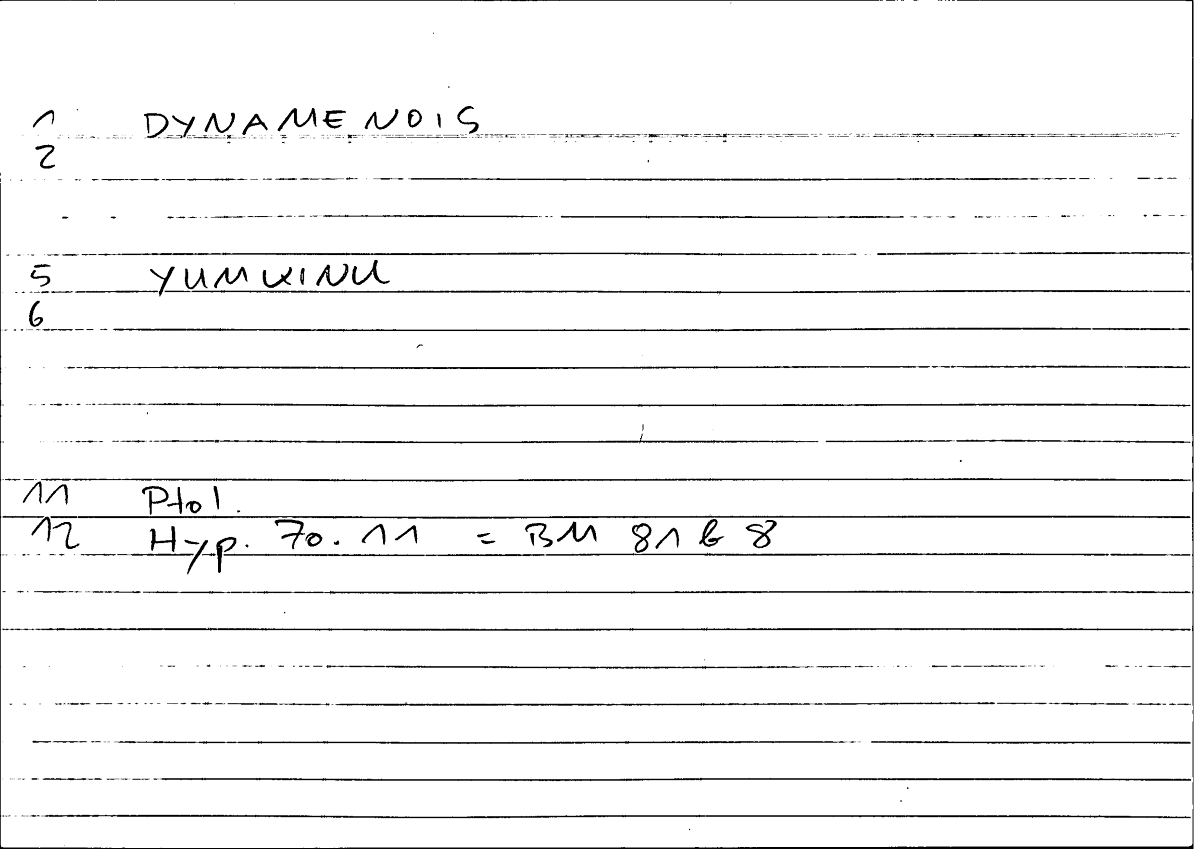 1 DYNAMENOIS
2
5 YUMKINU
6
11 Ptol.
12 Hyp. 70. 11 = BM 81 b 8